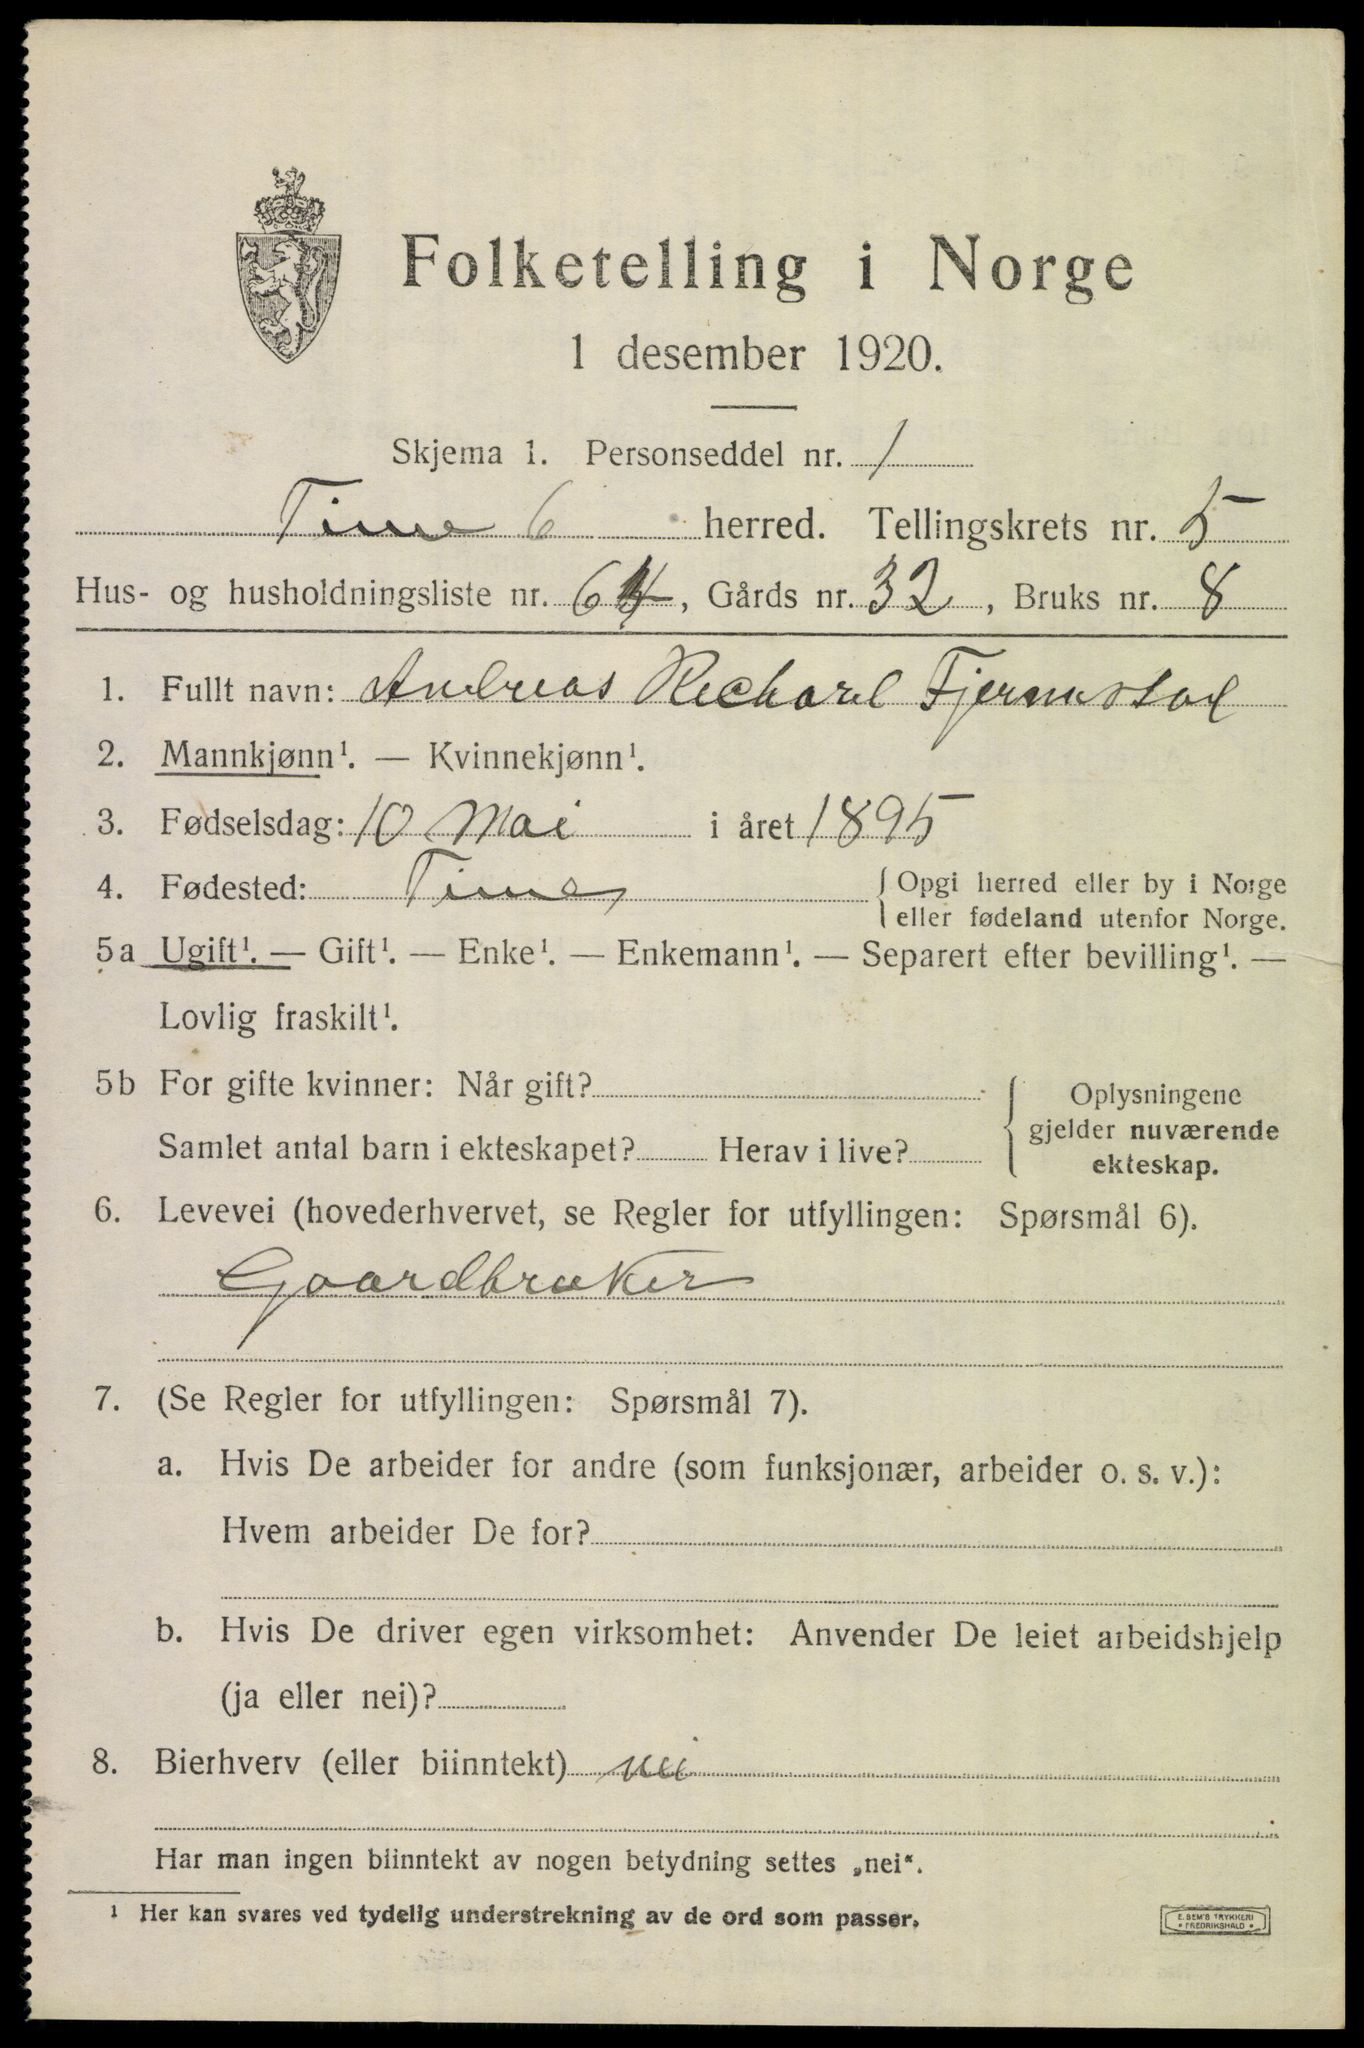 Folketelling i Norge
1 desember 1920.
Skjema 1. Personseddel nr. 1
Time 6 herred. Tellingskrets nr. 5
Hus- og husholdningsliste nr. 64, Gårds nr. 32, Bruks nr. 8
1. Fullt navn: Andreas Richard Fjermestad
2. Mannkjønn¹. — Kvinnekjønn¹.
3. Fødselsdag: 10 Mai i året 1895
4. Fødested: Time { Opgi herred eller by i Norge
eller fødeland utenfor Norge.
5a Ugift¹. — Gift¹. — Enke¹. — Enkemann¹. — Separert efter bevilling¹. —
Lovlig fraskilt¹.
5b For gifte kvinner: Når gift?
Samlet antal barn i ekteskapet? Herav i live?
Oplysningene
gjelder nuværende
ekteskap.
6. Levevei (hovederhvervet, se Regler for utfyllingen: Spørsmål 6).
Gaardbruker
7. (Se Regler for utfyllingen: Spørsmål 7).
a. Hvis De arbeider for andre (som funksjonær, arbeider o. s. v.):
Hvem arbeider De for?
b. Hvis De driver egen virksomhet: Anvender De leiet arbeidshjelp
(ja eller nei)?
8. Bierhverv (eller biinntekt) nei
Har man ingen biinntekt av nogen betydning settes „nei".
¹ Her kan svares ved tydelig understrekning av de ord som passer.
E. SEM'S TRYKKERI
* FREDRIKSHALD *